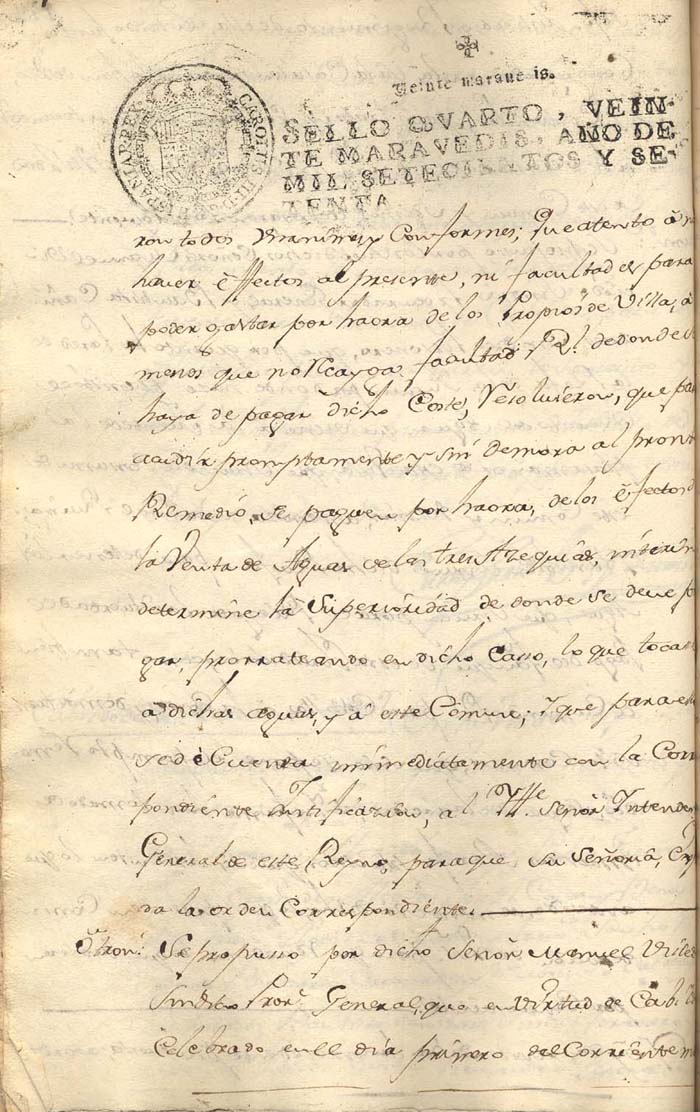 Veinte maravedis.
SELLO QVARTO, VEIN-
TE MARAVEDIS, AÑO DE
MIL SETECIENTOS Y SE-
TENTA
CAROLUS III D.
HISPANIAR REX
ron todos Vnanimes, y Conformes; Que atento á no
haver efectos al presente, ni facultades para
poder gastar por haora de los Propios de Villa, á
menos que no Rcayga facultad Rl. de donde se
haya de pagar dicho Coste, Resoluieron, que para
acudir promptamente y sin demora al pront
Remedio, se paguen por haora, de los efectos d
la Venta de Aguas de las tres Azequias, interin
determine la Superioridad de donde se deve pa
gar, prorrateando en dicho Casso, lo que toca
a dichas aguas, y á este Comun; Y que para es
se dè Cuenta inmediatamente con la Corr
pondiente Justificazion, al Ylle. Señor Intenden
General de este Reyno, para que su Señoria, Exp
da la orden Correspondiente.
Otron: Se propusso por dicho Señor Manuel
Sindico Pror. General, que en Virtud de Cabil
Celebrado en el dia primero del Corriente m